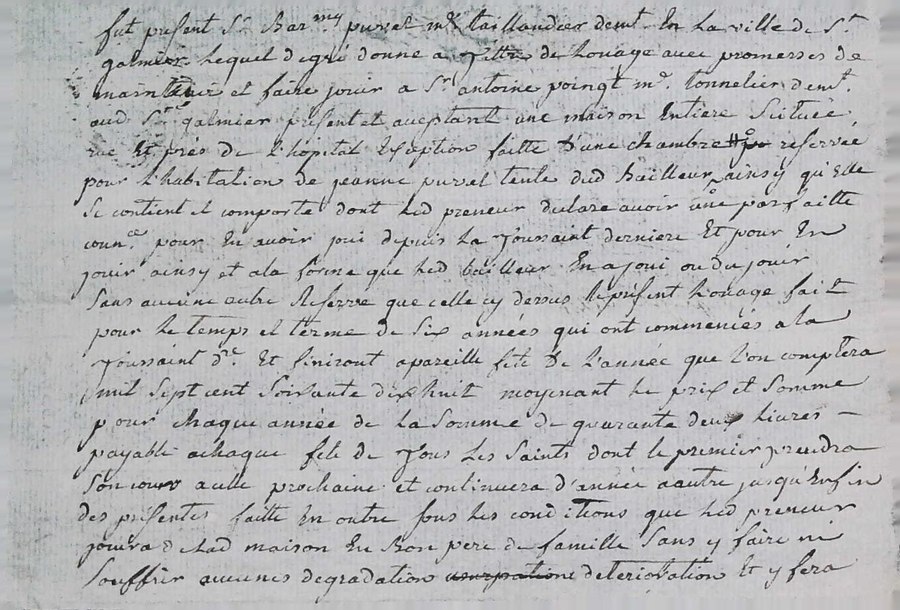 fut présent Sr Barmy puvel me taillandier demt En La ville de St
galmier Lequel de gré donne a Titre de Louage avec promesses de
maintenir et faire jouir a Sr antoine poingt me. tonnelier demt.
aud St galmier présent et acceptant une maison Entiere Scituée
rue Et près de L'hôpital Exception faitte d'une chambre reservée
pour L'habitation de jeanne puvel tente dud Bailleur ainsy qu'Elle
Se contient et comporte dont Led preneur declare avoir une parfaitte
connce pour En avoir joui depuis La Toussaint derniere Et pour En
jouir ainsy et a la forme que Led bailleur En a joui ou du jouir
Sans aucune autre Reserve que celle cy dessus le présent Louage fait
pour Le temps et terme de Six années qui ont commencés a la
Toussaint dre. Et finiront a pareille fête De L'année que l'on comptera
mil Sept cent Soixante dix huit moyenant Le prix et Somme
pour chaque année de La Somme de quarante deux Livres -
payable a chaque fête de Tous Les Saints dont le premier prendra
Son cours a celle prochaine et continuera d'année a autre jusqu'Enfin
des présentes faitte En outre sous Les conditions que Led preneur
jouira de Lad maison En Bon pere de famille Sans y faire ni
Souffrir aucunes degradation usurpations deterioration Et y fera